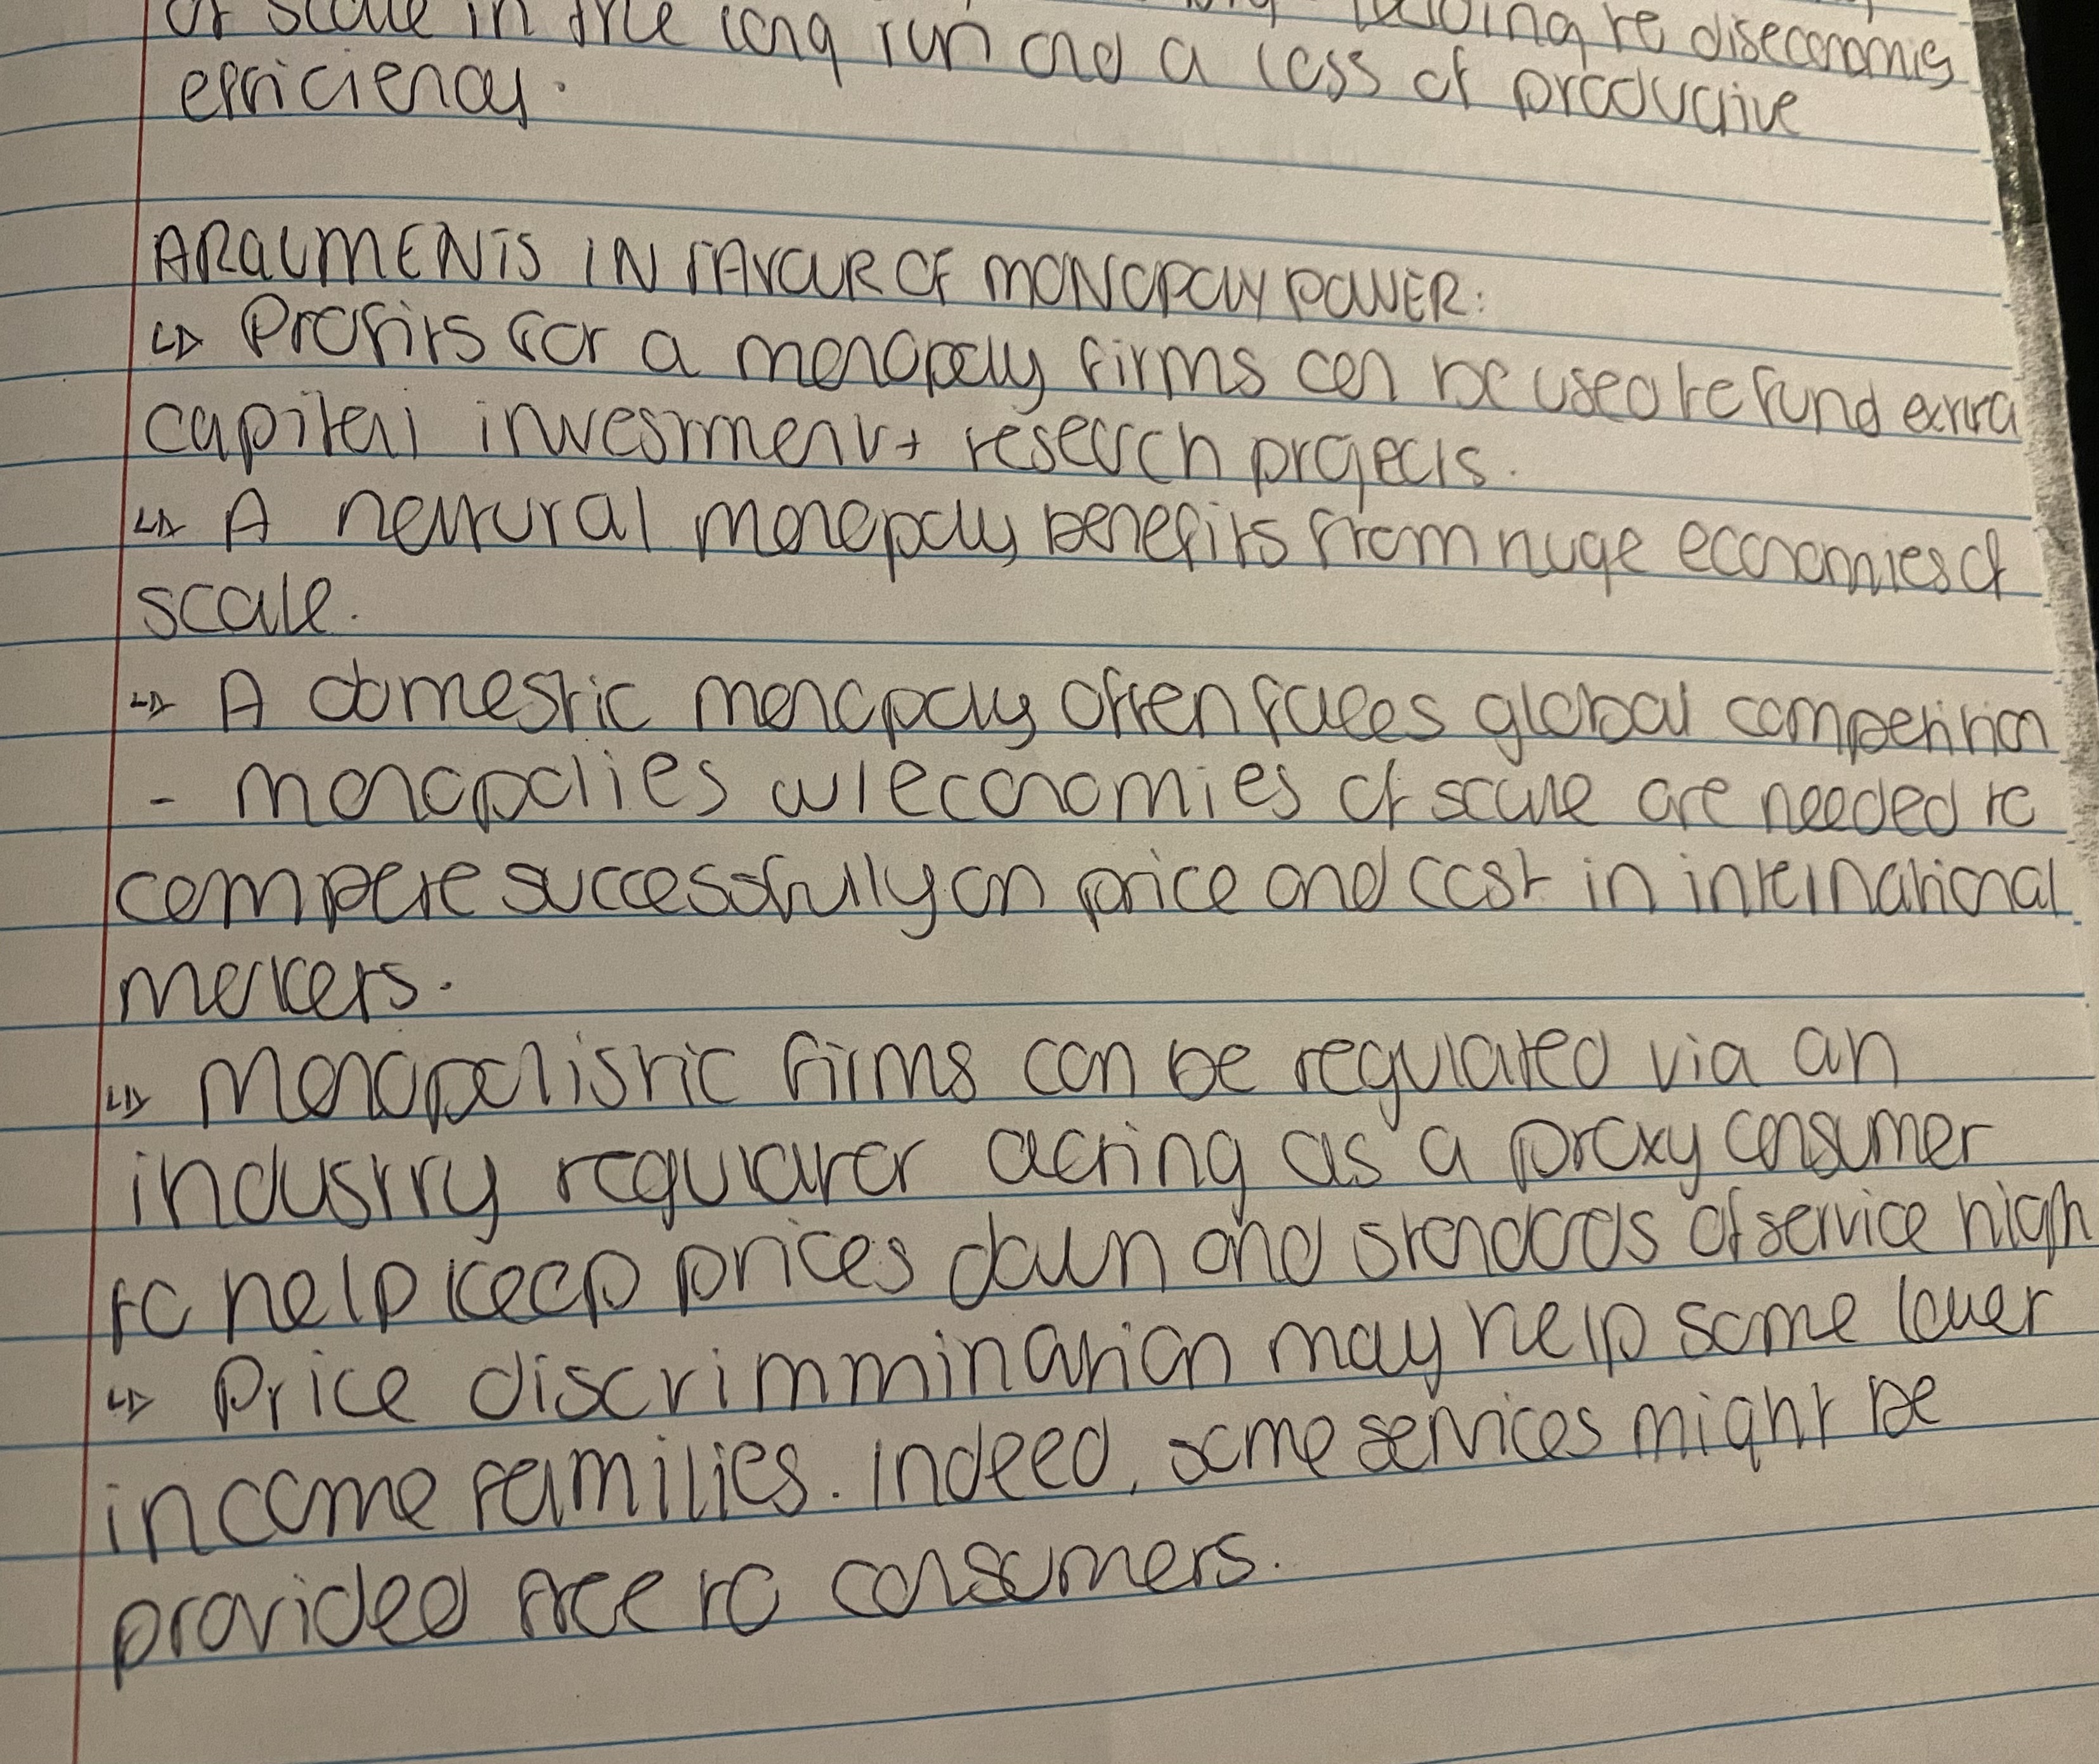 of scale in the long run and a loss of productive
leading to diseconomies
efficiency.
ARGUMENTS IN FAVOUR OF MONOPOLY POWER:
↳ Profits for a monopoly firms can be used to fund extra
capital investment + research projects.
↳ A natural monopoly benefits from huge economies of
scale.
↳ A domestic monopoly often faces global competition
- monopolies w/ economies of scale are needed to
compete successfully on price and cost in international
markets.
↳ Monopolistic firms can be regulated via an
industry regulator acting as a proxy consumer
to help keep prices down and standards of service high
↳ Price discrimmination may help some lower
income families. Indeed, some services might be
provided free to consumers.